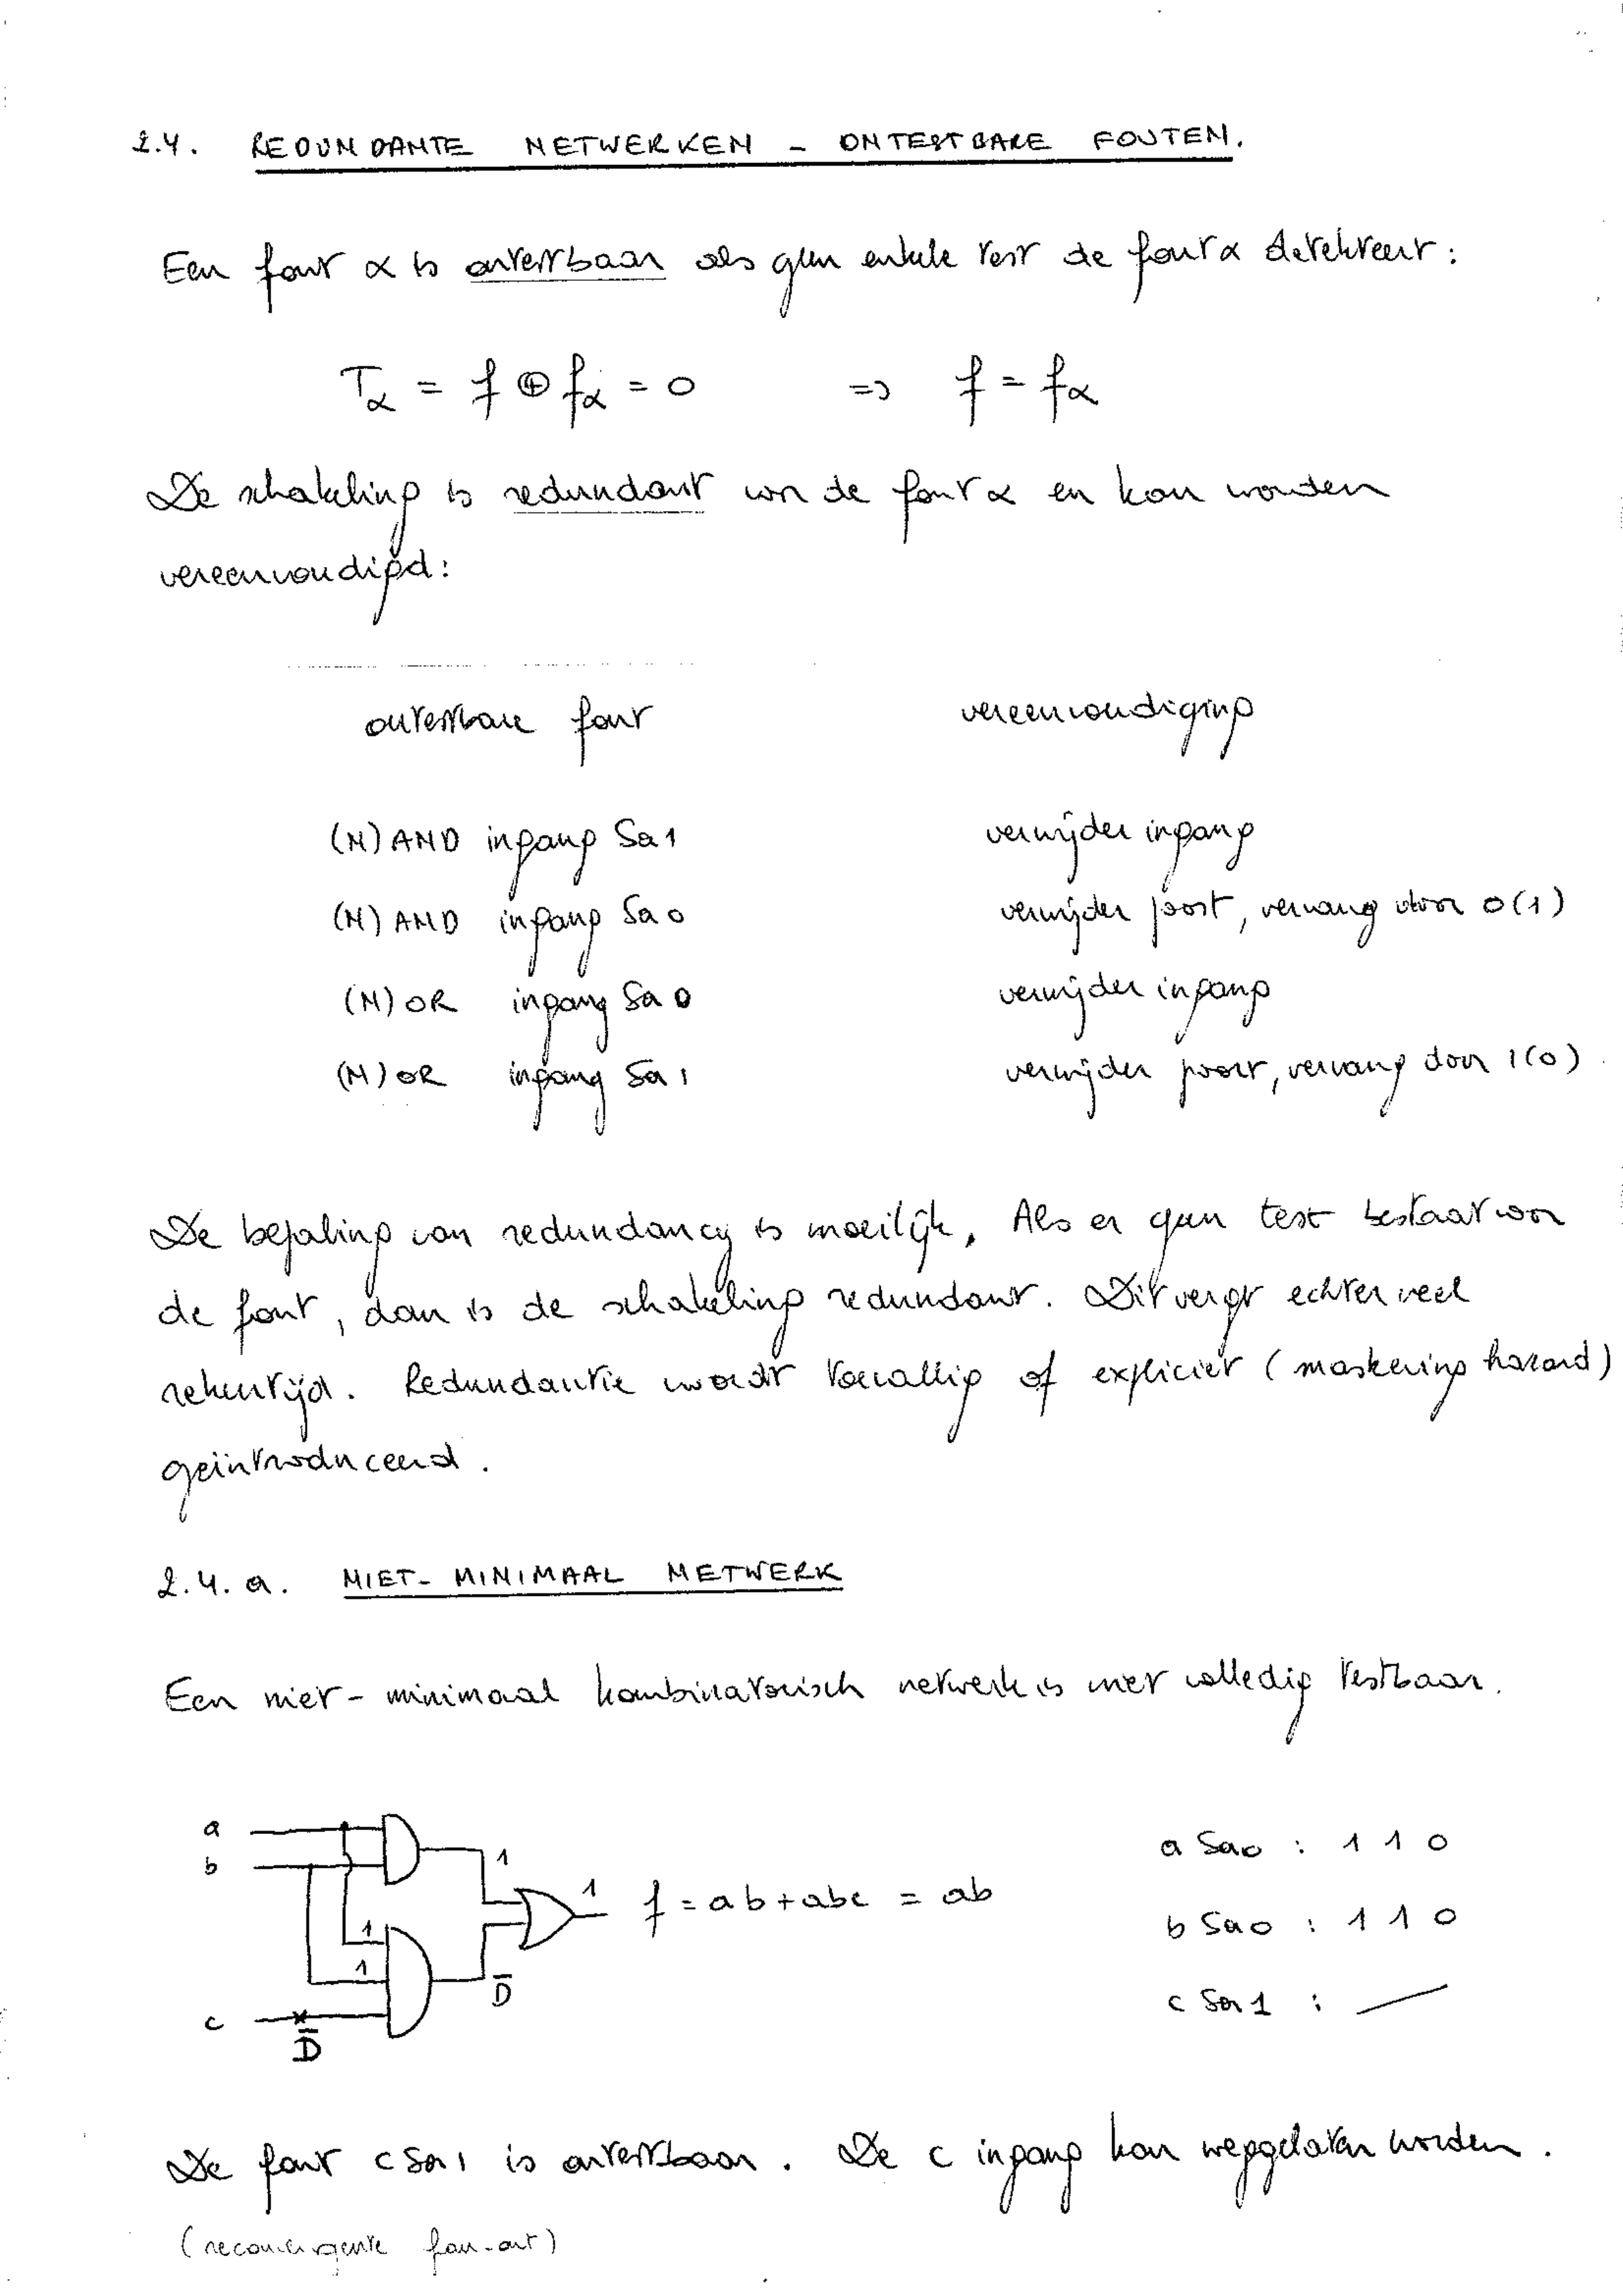 2.4. REDUNDANTE NETWERKEN - ONTESTBARE FOUTEN.
Een fout α is ontestbaar als geen enkele test de fout α detekteert:
Tα = f ⊕ fα = 0 => f = fα
De schakeling is redundant voor de fout α en kan worden
vereenvoudigd:
ontestbare fout vereenvoudiging
(N) AND ingang Sa1 verwijder ingang
(N) AND ingang Sa0 verwijder poort, vervang door 0(1)
(N) OR ingang Sa0 verwijder ingang
(N) OR ingang Sa1 verwijder poort, vervang door 1(0)
De bepaling van redundancy is moeilijk. Als er geen test bestaat voor
de fout, dan is de schakeling redundant. Dit vergt echter veel
rekentijd. Redundantie wordt toevallig of expliciet (maskering hazard)
geïntroduceerd.
2.4.a. NIET-MINIMAAL NETWERK
Een niet-minimaal kombinatorisch netwerk is niet volledig testbaar.
a
b
1
1
f = ab + abc = ab
1
1
D̅
c
D̅
a Sa0 : 1 1 0
b Sa0 : 1 1 0
c Sa1 : —
De fout c Sa1 is ontestbaar. De c ingang kan weggelaten worden.
(reconvergente fan-out)